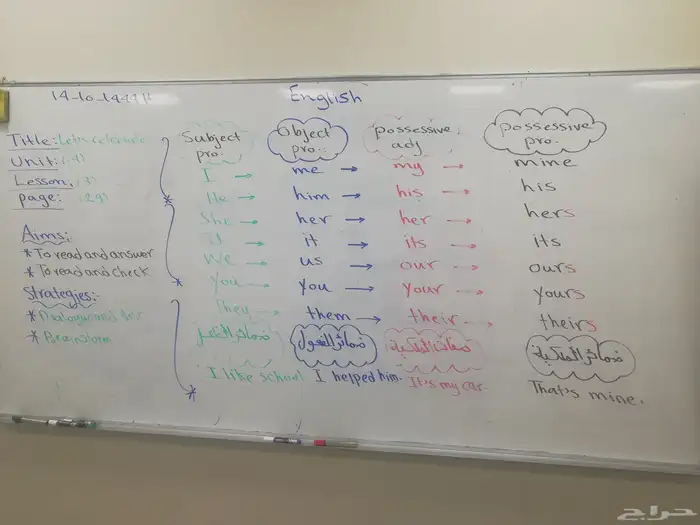 English
Title: Let's
Unit:
Lesson: (3)
page: (29)
Aims:
* To read and answer
* To read and check
Strategies:
*
* Brainstorm
Subject pro. Object pro. possessive adj possessive pro.
I → me → my → mine
He → him → his → his
She → her → her → hers
it → it → its → its
We → us → our → ours
You → you → your → yours
They → them → their → theirs
ضمائر الفاعل ضمائر المفعول صفات الملكية ضمائر الملكية
I like school I helped him. It's my car. That's mine.
حراج